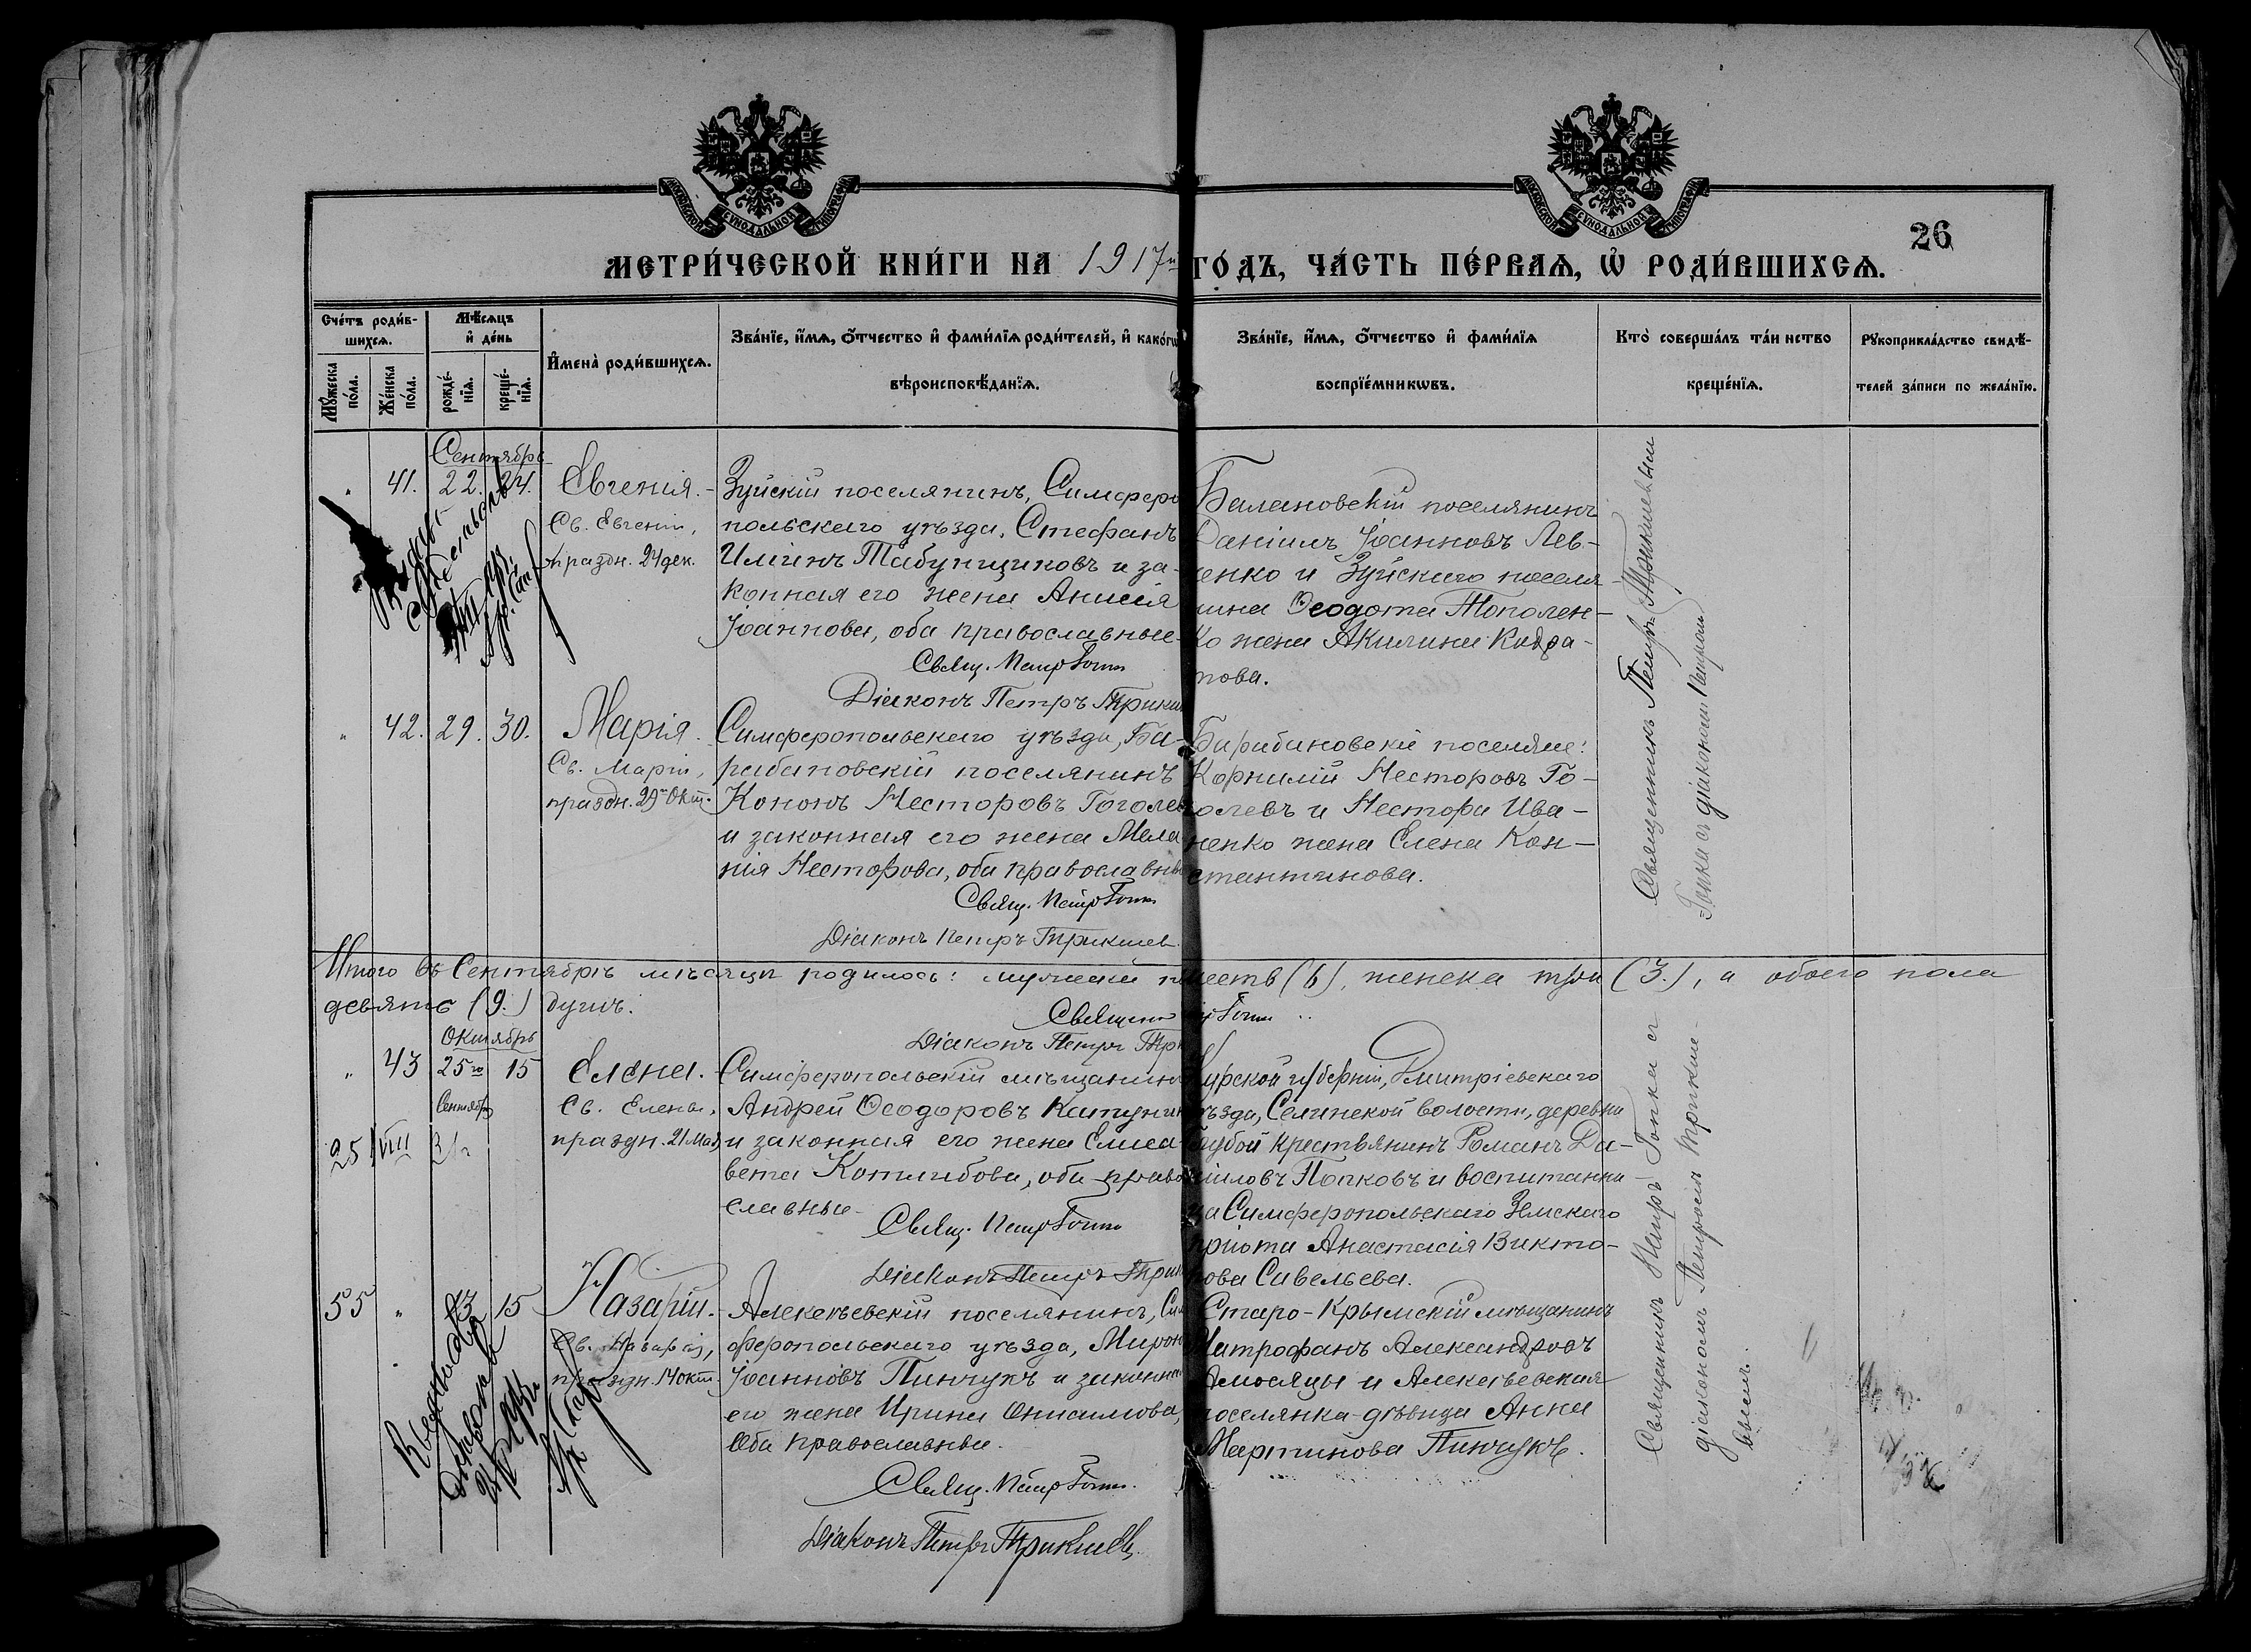 МОСКОВСКОЙ СѴНОДАЛЬНОЙ ТИПОГРАФІИ
МОСКОВСКОЙ СѴНОДАЛЬНОЙ ТИПОГРАФІИ
26
МЕТРИ́ЧЕСКОЙ КНИ́ГИ НА 1917й ГО́ДЪ, ЧА́СТЬ ПЕ́РВАѦ, Ѡ҆ РОДИ́ВШИХСѦ.
Сче́тъ роди́в-
шихсѧ.
Мꙋ́жеска по́ла.
Же́нска по́ла.
Мѣ́сѧцъ
и҆ де́нь
рожде́-
нїѧ.
креще́-
нїѧ.
И҆мена̀ роди́вшихсѧ.
Зва́нїе, и҆́мѧ, ѻ҆́тчество и҆ фами́лїѧ роди́телей, и҆ како́гѡ
вѣроисповѣ́данїѧ.
Зва́нїе, и҆́мѧ, ѻ҆́тчество и҆ фами́лїѧ
воспрїе́мникѡвъ.
Кто̀ соверша́лъ та́инство
креще́нїѧ.
Рꙋкоприкла́дство свидѣ́-
телей за́писи по жела́нїю.
Сентябрь
" 41. 22. 24. Евгенія.
Св. Евгеніи,
праздн. 24 дек.
Зуйскій поселянинъ, Симферо
польскаго уѣзда, Стефанъ
Иліинъ Табунщиковъ и за-
конная его жена Анисія
Іоаннова, оба православные
Свящ. Петр Гопка
Діаконъ Петръ Трики
Балановскій поселянинъ
Даніилъ Іоанновъ Лев-
ченко и Зуйскаго поселя-
нина Ѳеодота Тополен-
ко жена Акилина Кодра-
това.
" 42. 29. 30. Марія.
Св. Маріи,
праздн. 29 Окт.
Симферопольскаго уѣзда, Ба-
рабановскій поселянинъ
Кононъ Несторовъ Гоголев
и законная его жена Мела
нія Несторова, оба православны
Свящ. Петр Гопка
Діаконъ Петръ Трикилев
Барабановскіе поселяне:
Корнилій Несторовъ Го-
голевъ и Нестора Ива-
ненко жена Елена Кон-
стантинова.
Священникъ Петръ
Гопка съ діакономъ Петромъ
Итого въ Сентябрѣ мѣсяцѣ родилось: мужска п шесть (6), женска три (3.), а обоего пола
девять (9.) душъ.
Священ Гопка
Діаконъ Петръ Три
Октябрь
" 43 25го 15 Елена.
Сентября
Св. Елены,
праздн. 21 Мая
25/VIII
Симферопольскій мѣщанинъ
Андрей Ѳеодоровъ Катунин
и законная его жена Елиса-
вета Котлубова, оба право
славные
Свящ. Петр Гопка
Діаконъ Петръ Трик
Курской губерніи, Дмитріевскаго
уѣзда, Селинской волости, деревни
крестьянинъ Романъ Да-
ніиловъ Попковъ и воспитанни
ца Симферопольскаго Земскаго
пріюта Анастасія Викто-
рова Савельева.
55 " 13 15 Назарій.
Св. Назарія,
праздн. 14 окт.
Алексѣевскій поселянинъ, Сим
феропольскаго уѣзда, Мирон
Іоанновъ Пинчукъ и законная
его жена Ирина Онисимова,
Оба православные.
Свящ. Петр Гопка.
Діаконъ Петръ Трикилев
Старо-Крымскій мѣщанинъ
Митрофанъ Александровъ
и Алексѣевская
поселянка-дѣвица Анна
Мартинова Пинчукъ.
Священникъ Петръ Гопка съ
діакономъ Петромъ Трикиле-
вымъ.